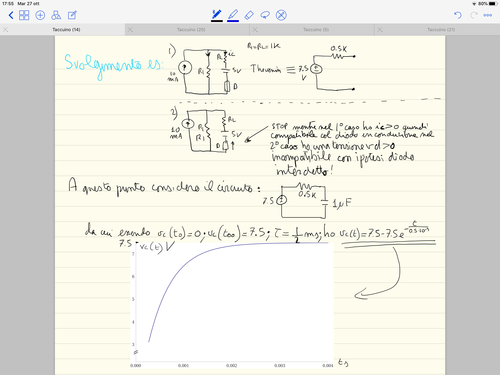 17:55 Mar 27 ott 80%
Taccuino (14) Taccuino (29) Taccuino (6) Taccuino (31)
Svolgimento es:
1) R₁=R₂=1K
10 mA R₁ R₂ ic 5V D Thevenin ≡ 7.5 V 0.5K
2)
10 mA R₁ R₂ 5V D
STOP mentre nel 1° caso ho ic>0 quindi
compatibile col diodo in conduzione nel
2° caso ho una tensione vd>0
incompatibile con ipotesi diodo
interdetto!
A questo punto considero il circuito: 7.5 0.5K 1μF
da cui essendo vc(t0)=0; vc(t∞)=7.5; τ=1/2 ms; ho vc(t)=7.5-7.5e^-t/0.5·10⁻³
7.5 vc(t) V
7
6
5
4
3
0.000 0.001 0.002 0.003 0.004 t s